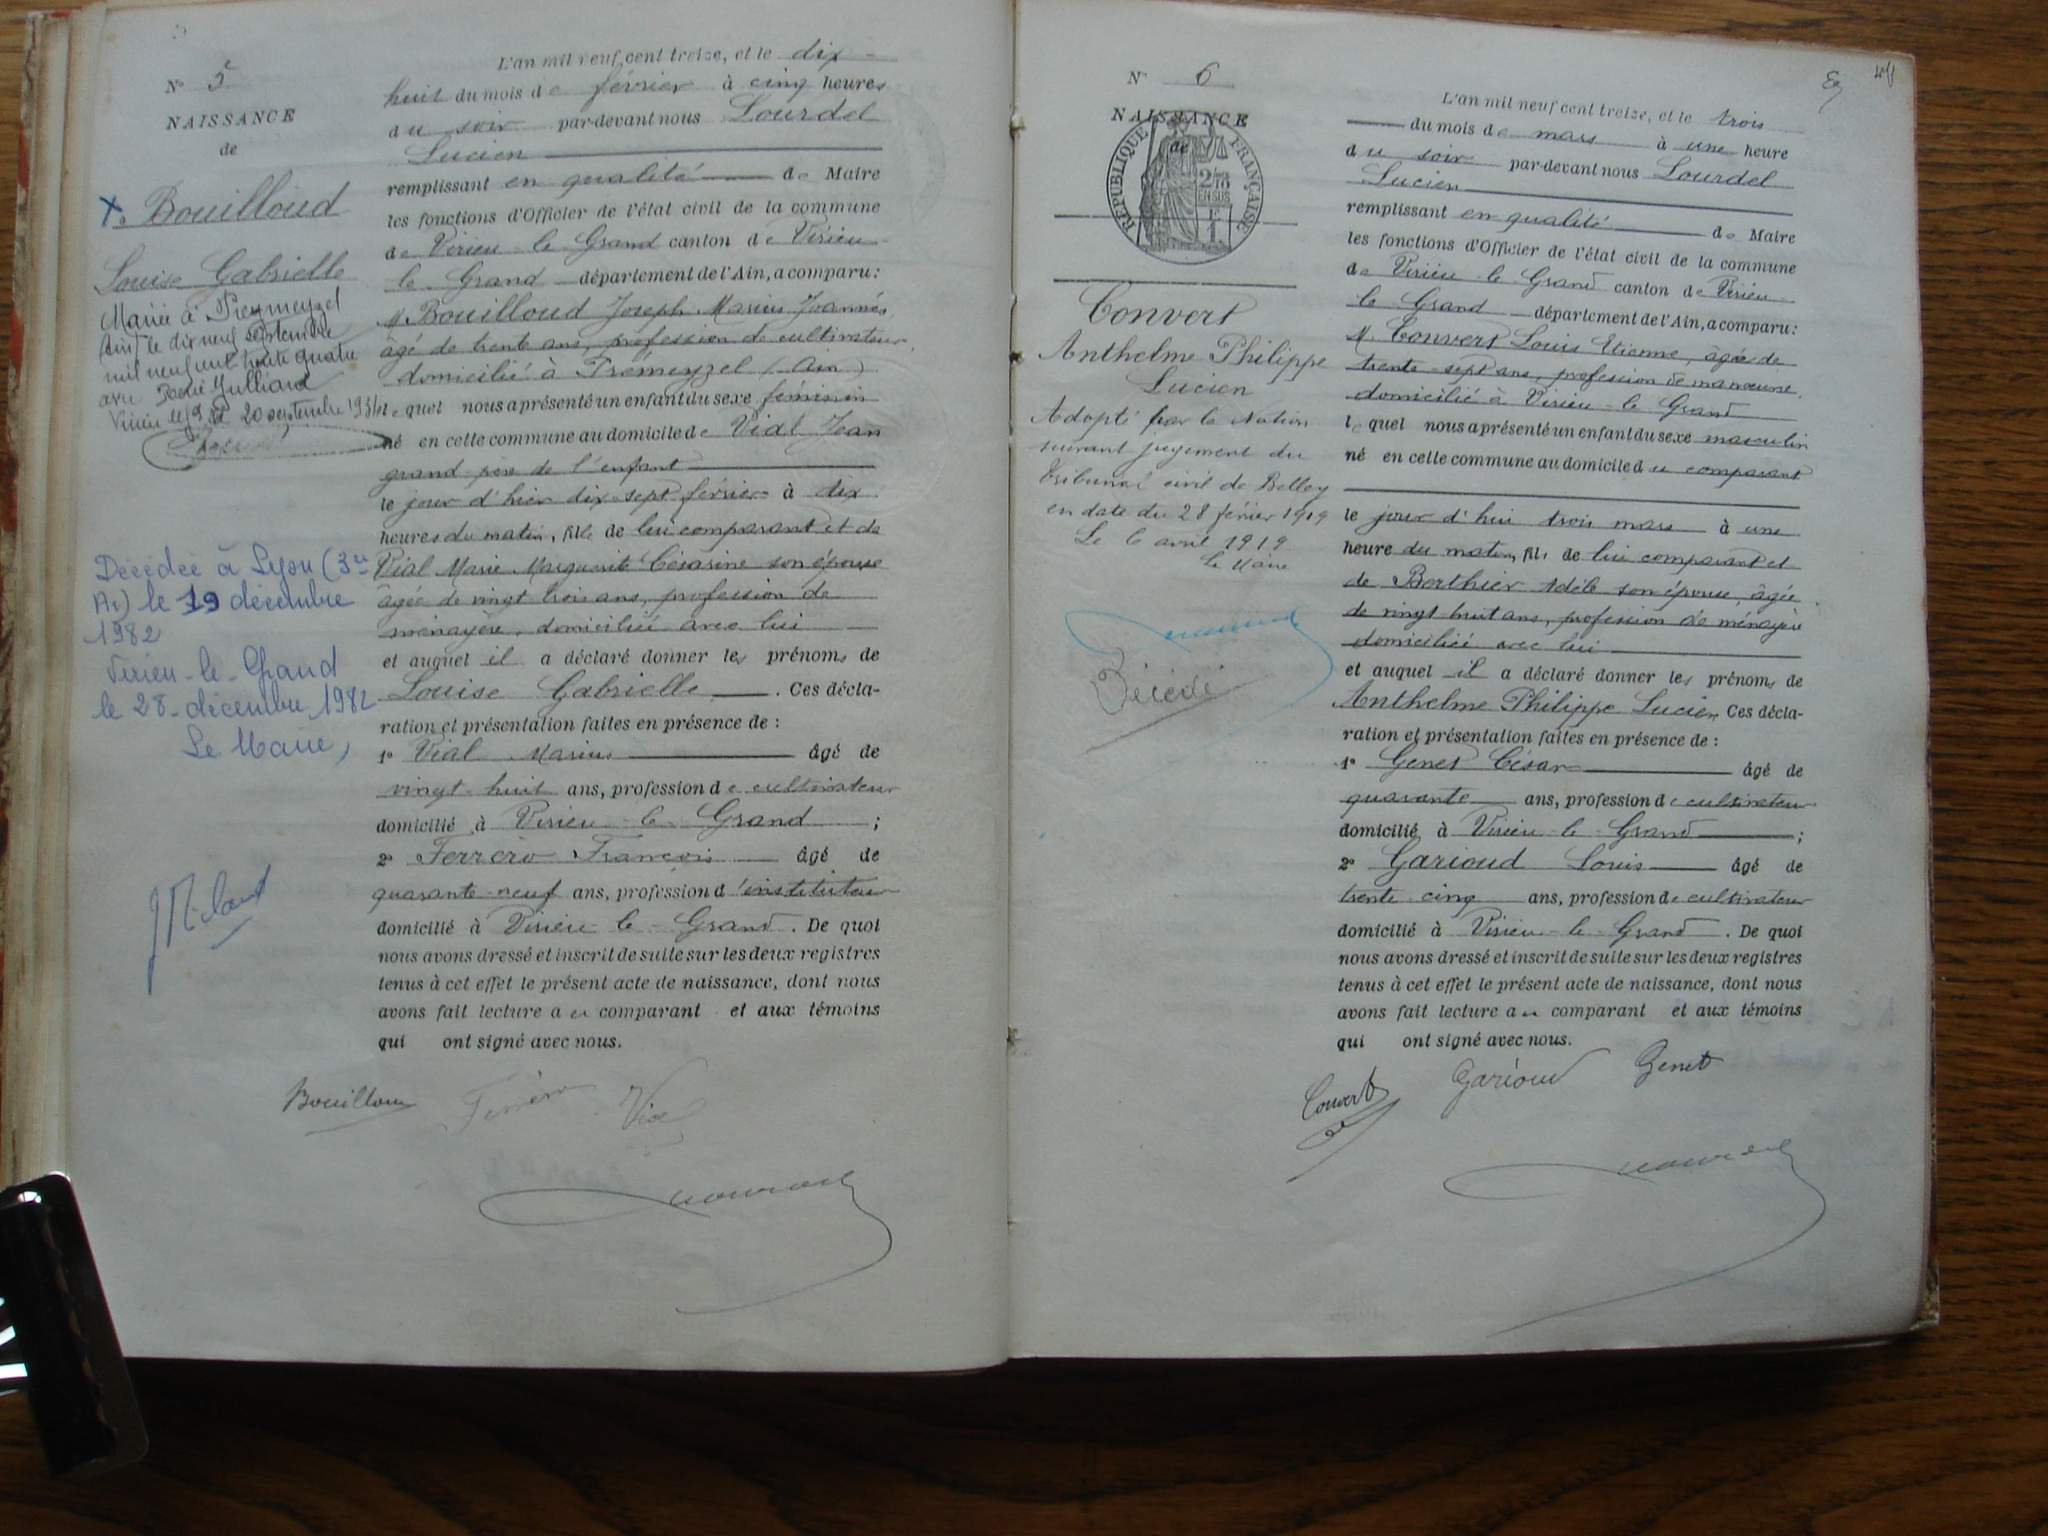 N° 5
NAISSANCE
de
Bouilloud
Louise Gabrielle
Mariée à Preymeyzel
(Ain) le dix neuf septembre
mil neuf cent trente quatre
avec Julliard
Virieu le Gd 20 septembre 1934
Décédée à Lyon (3e
Ar) le 19 décembre
1982
Virieu-le-Grand
le 28 décembre 1982
Le Maire,
L'an mil neuf cent treize, et le dix-
huit du mois de février à cinq heures
du soir par-devant nous Lourdel
Lucien
remplissant en qualité de Maire
les fonctions d'Officier de l'état civil de la commune
de Virieu-le-Grand canton de Virieu-
le Grand département de l'Ain, a comparu:
M. Bouilloud Joseph Marius Joannès,
âgé de trente ans, profession de cultivateur,
domicilié à Prémeyzel (Ain)
lequel nous a présenté un enfant du sexe féminin
né en cette commune au domicile de Vial Jean
grand-père de l'enfant
le jour d'hier dix-sept février à dix
heures du matin, fille de lui comparant et de
Vial Marie Marguerite Césarine son épouse
âgée de vingt trois ans, profession de
ménagère, domiciliée avec lui
et auquel il a déclaré donner les prénoms de
Louise Gabrielle . Ces décla-
ration et présentation faites en présence de :
1° Vial Marius âgé de
vingt-huit ans, profession de cultivateur
domicilié à Virieu-le-Grand ;
2° Ferrero François âgé de
quarante-neuf ans, profession d'instituteur
domicilié à Virieu-le-Grand . De quoi
nous avons dressé et inscrit de suite sur les deux registres
tenus à cet effet le présent acte de naissance, dont nous
avons fait lecture au comparant et aux témoins
qui ont signé avec nous.
Bouilloud
Vial
N° 6
NAISSANCE
de
RÉPUBLIQUE FRANÇAISE
2/10
EN SUS
Convert
Anthelme Philippe
Lucien
Adopté par la Nation
suivant jugement du
tribunal civil de Belley
en date du 28 février 1919
Le 6 avril 1919
Le Maire
Décédé
L'an mil neuf cent treize, et le trois
du mois de mars à une heure
du soir par-devant nous Lourdel
Lucien
remplissant en qualité de Maire
les fonctions d'Officier de l'état civil de la commune
de Virieu-le-Grand canton de Virieu-
le Grand département de l'Ain, a comparu:
M. Convert Louis Etienne, âgé de
trente-sept ans, profession de manœuvre,
domicilié à Virieu-le-Grand
lequel nous a présenté un enfant du sexe masculin
né en cette commune au domicile du comparant
le jour d'hui trois mars à une
heure du matin, fils de lui comparant et
de Berthier Adèle son épouse, âgée
de vingt-huit ans, profession de ménagère
domiciliée avec lui
et auquel il a déclaré donner les prénoms de
Anthelme Philippe Lucien. Ces décla-
ration et présentation faites en présence de :
1° Genet César âgé de
quarante ans, profession de cultivateur
domicilié à Virieu-le-Grand ;
2° Garioud Louis âgé de
trente-cinq ans, profession de cultivateur
domicilié à Virieu-le-Grand . De quoi
nous avons dressé et inscrit de suite sur les deux registres
tenus à cet effet le présent acte de naissance, dont nous
avons fait lecture au comparant et aux témoins
qui ont signé avec nous.
Convert Garioud Genet